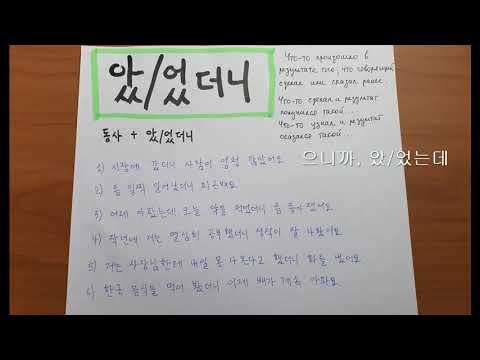 았/었더니
Что-то произошло в
результате того, что говорящий
сделал или сказал ранее.
Что-то сделал и результат
получился такой...
Что-то узнал и результат
оказался такой...
동사 + 았/었더니
으니까, 았/었는데
1) 시장에 갔더니 사람이 엄청 많았어요
2) 좀 일찍 일어났더니 피곤해요
3) 어제 아팠는데 오늘 약을 먹었더니 좀 좋아졌어요
4) 작년에 저는 열심히 공부했더니 성적이 잘 나왔어요
5) 저는 사장님한테 내일 못 나온다고 했더니 화를 냈어요
6) 한국 음식을 먹어 봤더니 이제 배가 계속 아파요